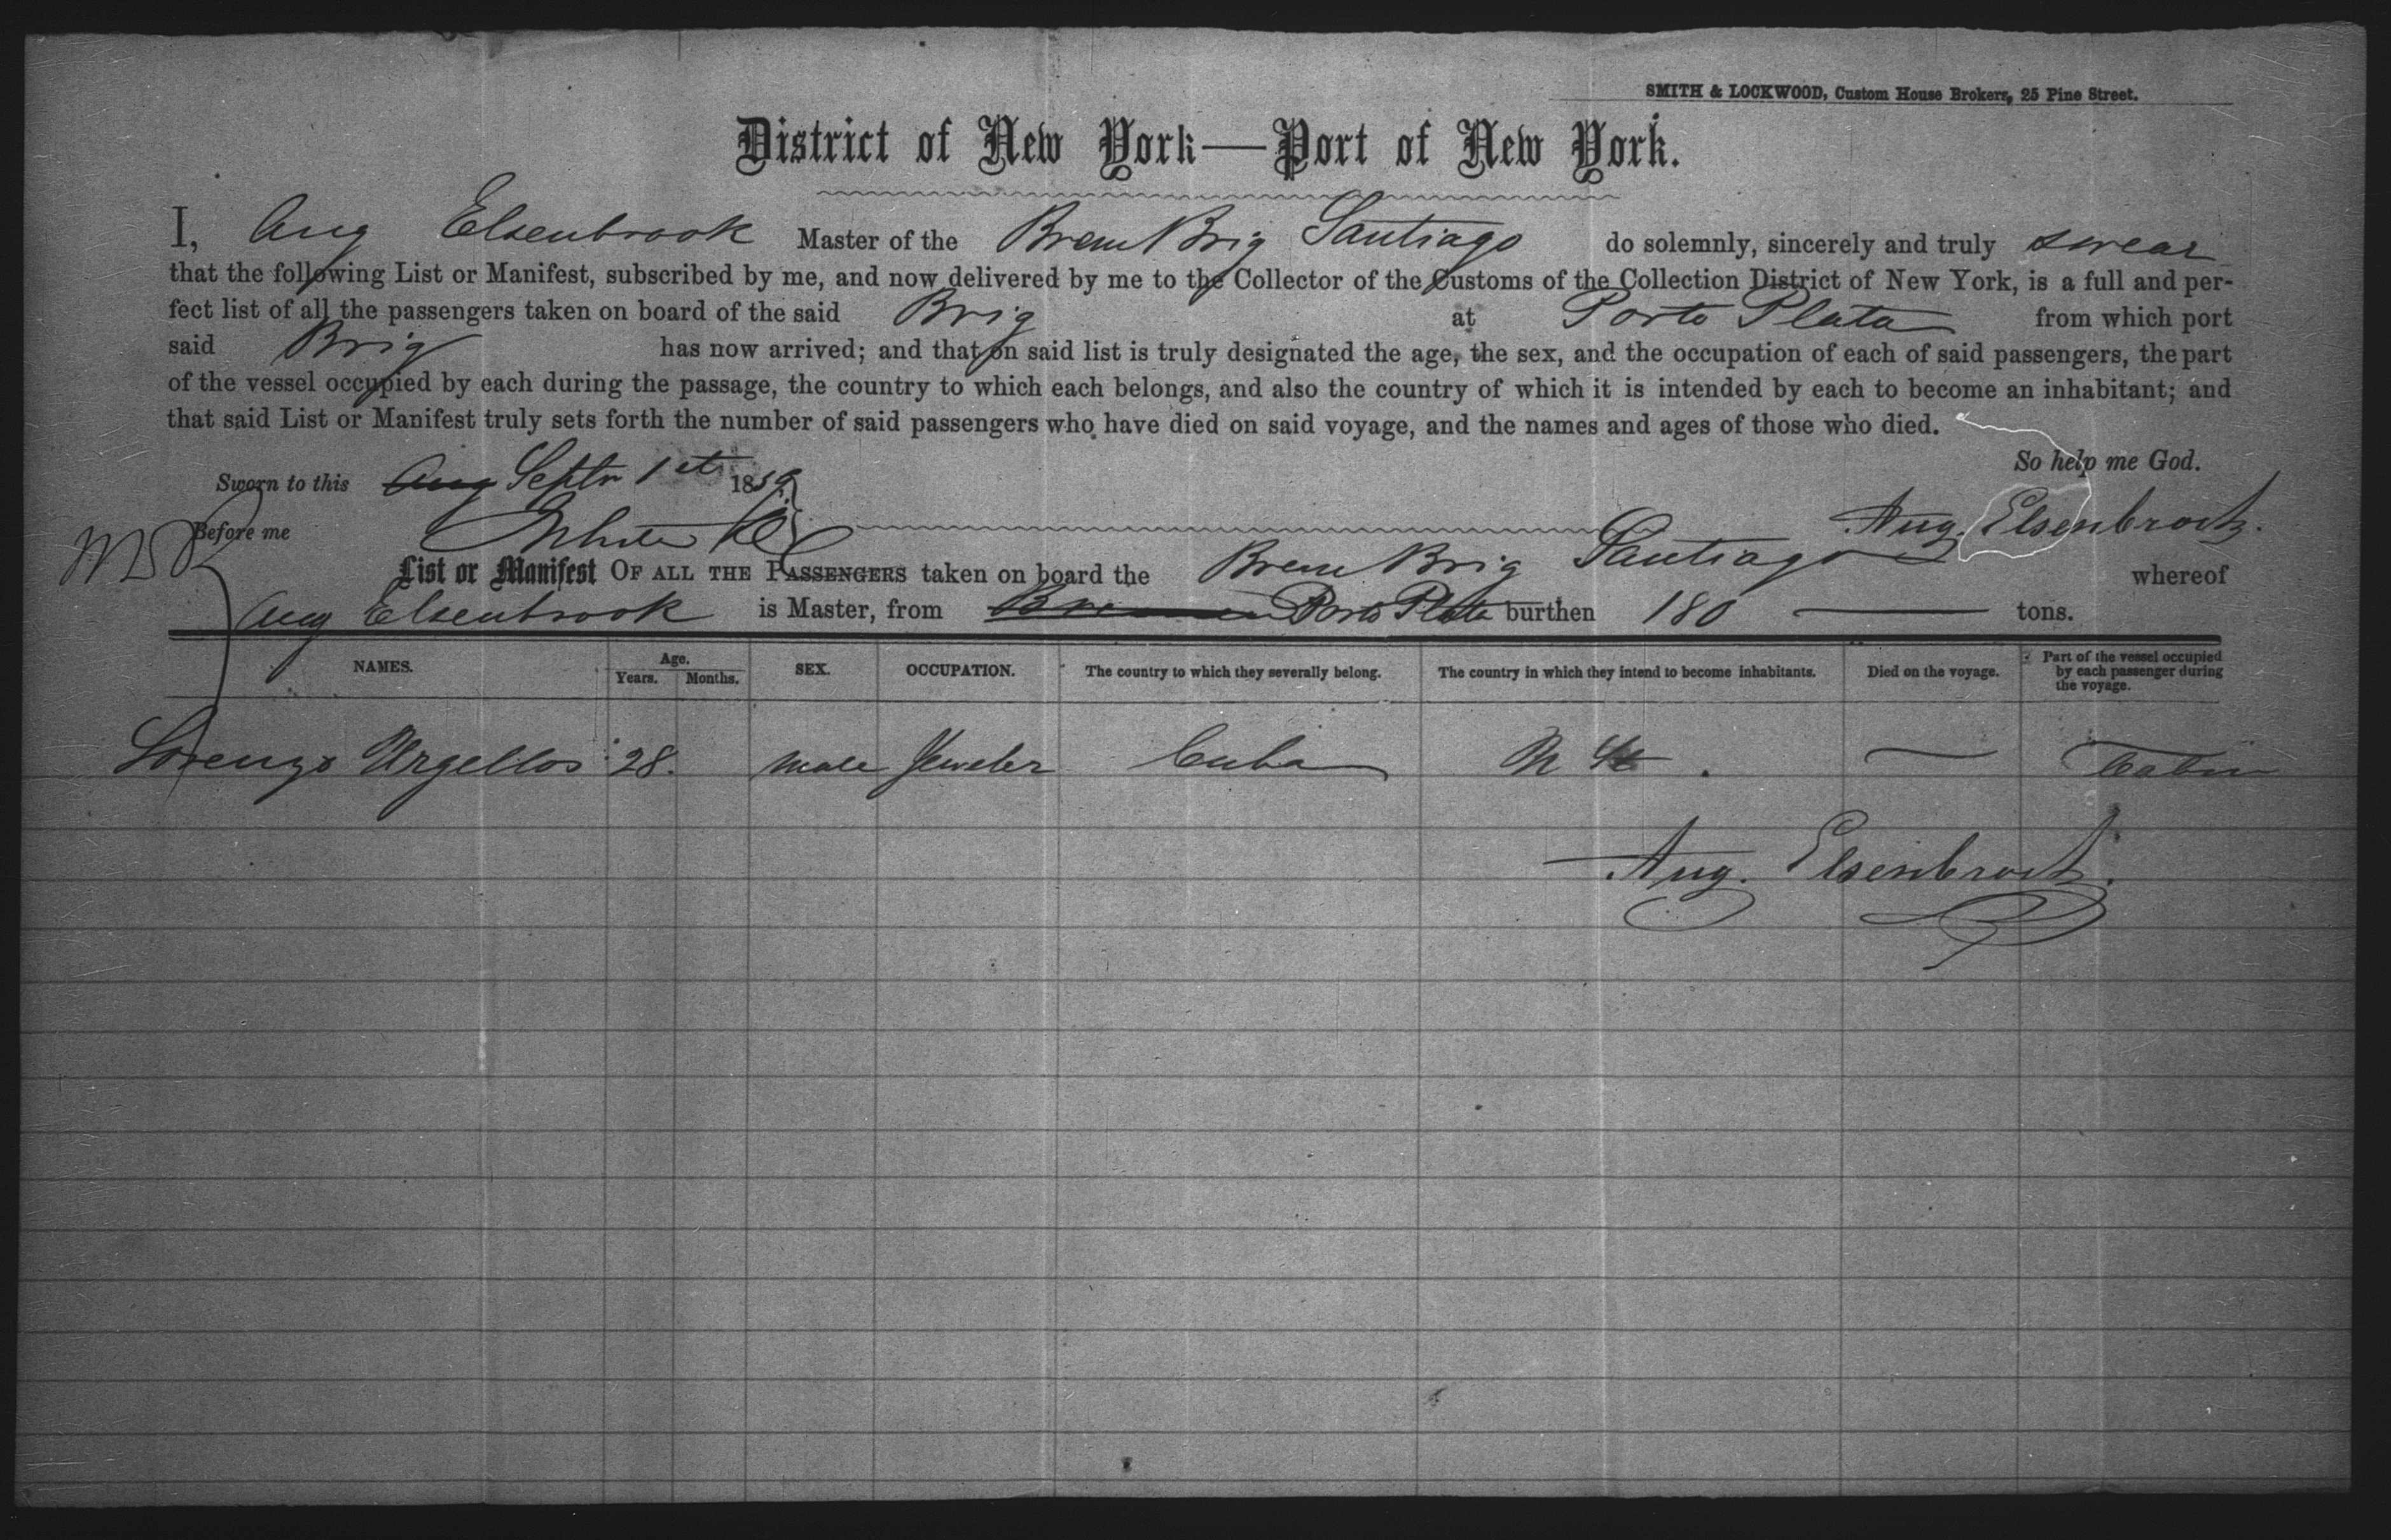 SMITH & LOCKWOOD, Custom House Brokers, 25 Pine Street.
District of New York—Port of New York.
I, Aug Elsenbrook Master of the Brem Brig Santiago do solemnly, sincerely and truly swear
that the following List or Manifest, subscribed by me, and now delivered by me to the Collector of the Customs of the Collection District of New York, is a full and per-
fect list of all the passengers taken on board of the said Brig at Porto Plata from which port
said Brig has now arrived; and that on said list is truly designated the age, the sex, and the occupation of each of said passengers, the part
of the vessel occupied by each during the passage, the country to which each belongs, and also the country of which it is intended by each to become an inhabitant; and
that said List or Manifest truly sets forth the number of said passengers who have died on said voyage, and the names and ages of those who died.
So help me God.
Sworn to this Aug Septr 1st 1859
Before me
Aug. Elsenbrock.
List or Manifest OF ALL THE PASSENGERS taken on board the Brem Brig Santiago whereof
Aug Elsenbrook is Master, from Bremen Porto Plata burthen 180 tons.
NAMES. Age. Years. Months. SEX. OCCUPATION. The country to which they severally belong. The country in which they intend to become inhabitants. Died on the voyage. Part of the vessel occupied by each passenger during the voyage.
Lorenzo Urgellos 28. male Jeweler Cuba — Cabin
Aug. Elsenbrock.